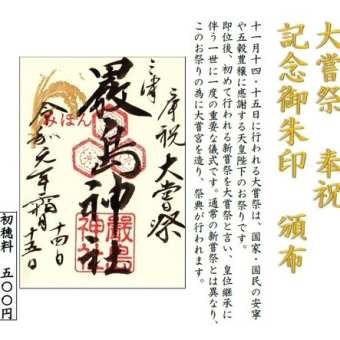 大嘗祭　奉祝
記念御朱印　頒布
十一月十四・十五日に行われる大嘗祭は、国家・国民の安寧
や五穀豊穣に感謝する天皇陛下のお祭りです。
即位後、初めて行われる新嘗祭を大嘗祭と言い、皇位継承に
伴う一世に一度の重要な儀式です。通常の新嘗祭とは異なり、
このお祭りの為に大嘗宮を造り、祭典が行われます。
奉祝 大嘗祭
三津
嚴島神社
嚴島神社
十四日
十五日
初穂料　五〇〇円